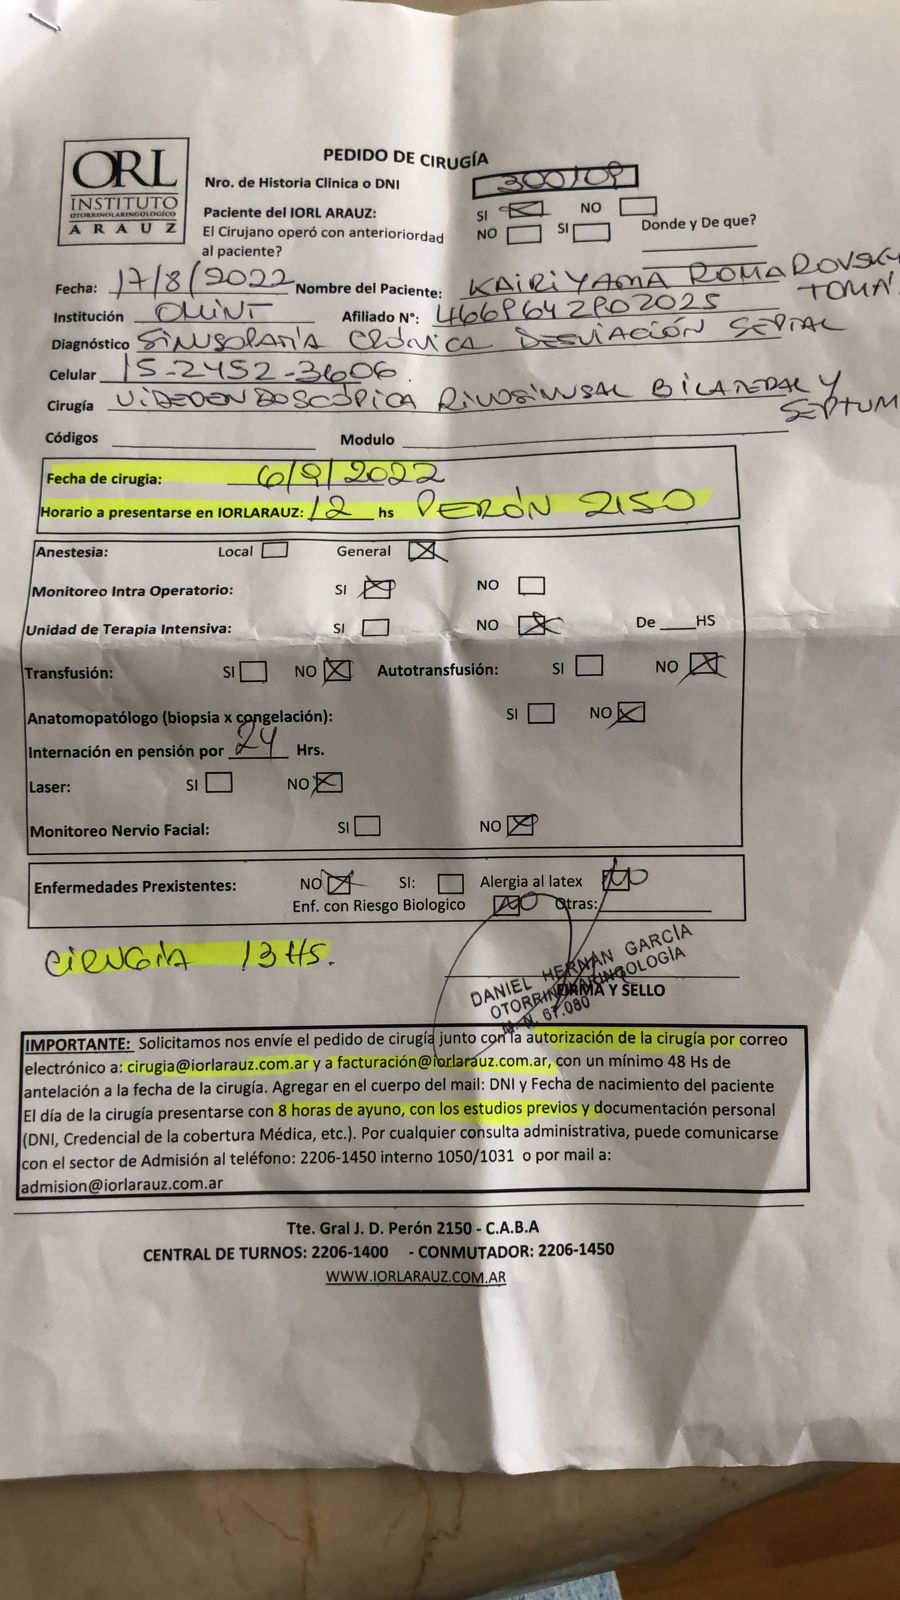 ORL
INSTITUTO
OTORRINOLARINGOLÓGICO
ARAUZ
PEDIDO DE CIRUGÍA
Nro. de Historia Clinica o DNI 300109
Paciente del IORL ARAUZ: SI NO
El Cirujano operó con anterioriordad al paciente? NO SI Donde y De que?
Fecha: 17/8/2022 Nombre del Paciente: KAIRIYAMA ROMAROVSKY TOMA
Institución OMINT Afiliado N°:
Diagnóstico CRÓNICA DESVIACIÓN SEPTAL
Celular 15-2452-3606
Cirugía BILATERAL Y SEPTUM
Códigos Modulo
Fecha de cirugia: 6/9/2022
Horario a presentarse en IORLARAUZ: 12 hs PERÓN 2150
Anestesia: Local General
Monitoreo Intra Operatorio: SI NO
Unidad de Terapia Intensiva: SI NO De HS
Transfusión: SI NO Autotransfusión: SI NO
Anatomopatólogo (biopsia x congelación): SI NO
Internación en pensión por 24 Hrs.
Laser: SI NO
Monitoreo Nervio Facial: SI NO
Enfermedades Prexistentes: NO SI: Alergia al latex NO
Enf. con Riesgo Biologico NO Otras:
CIRUGÍA 13 HS.
DANIEL HERNÁN GARCÍA
OTORRINOLARINGOLOGÍA
M. N. 67.080
FIRMA Y SELLO
IMPORTANTE: Solicitamos nos envíe el pedido de cirugía junto con la autorización de la cirugía por correo
electrónico a: cirugia@iorlarauz.com.ar y a facturación@iorlarauz.com.ar, con un mínimo 48 Hs de
antelación a la fecha de la cirugía. Agregar en el cuerpo del mail: DNI y Fecha de nacimiento del paciente
El día de la cirugía presentarse con 8 horas de ayuno, con los estudios previos y documentación personal
(DNI, Credencial de la cobertura Médica, etc.). Por cualquier consulta administrativa, puede comunicarse
con el sector de Admisión al teléfono: 2206-1450 interno 1050/1031 o por mail a:
admision@iorlarauz.com.ar
Tte. Gral J. D. Perón 2150 - C.A.B.A
CENTRAL DE TURNOS: 2206-1400 - CONMUTADOR: 2206-1450
WWW.IORLARAUZ.COM.AR